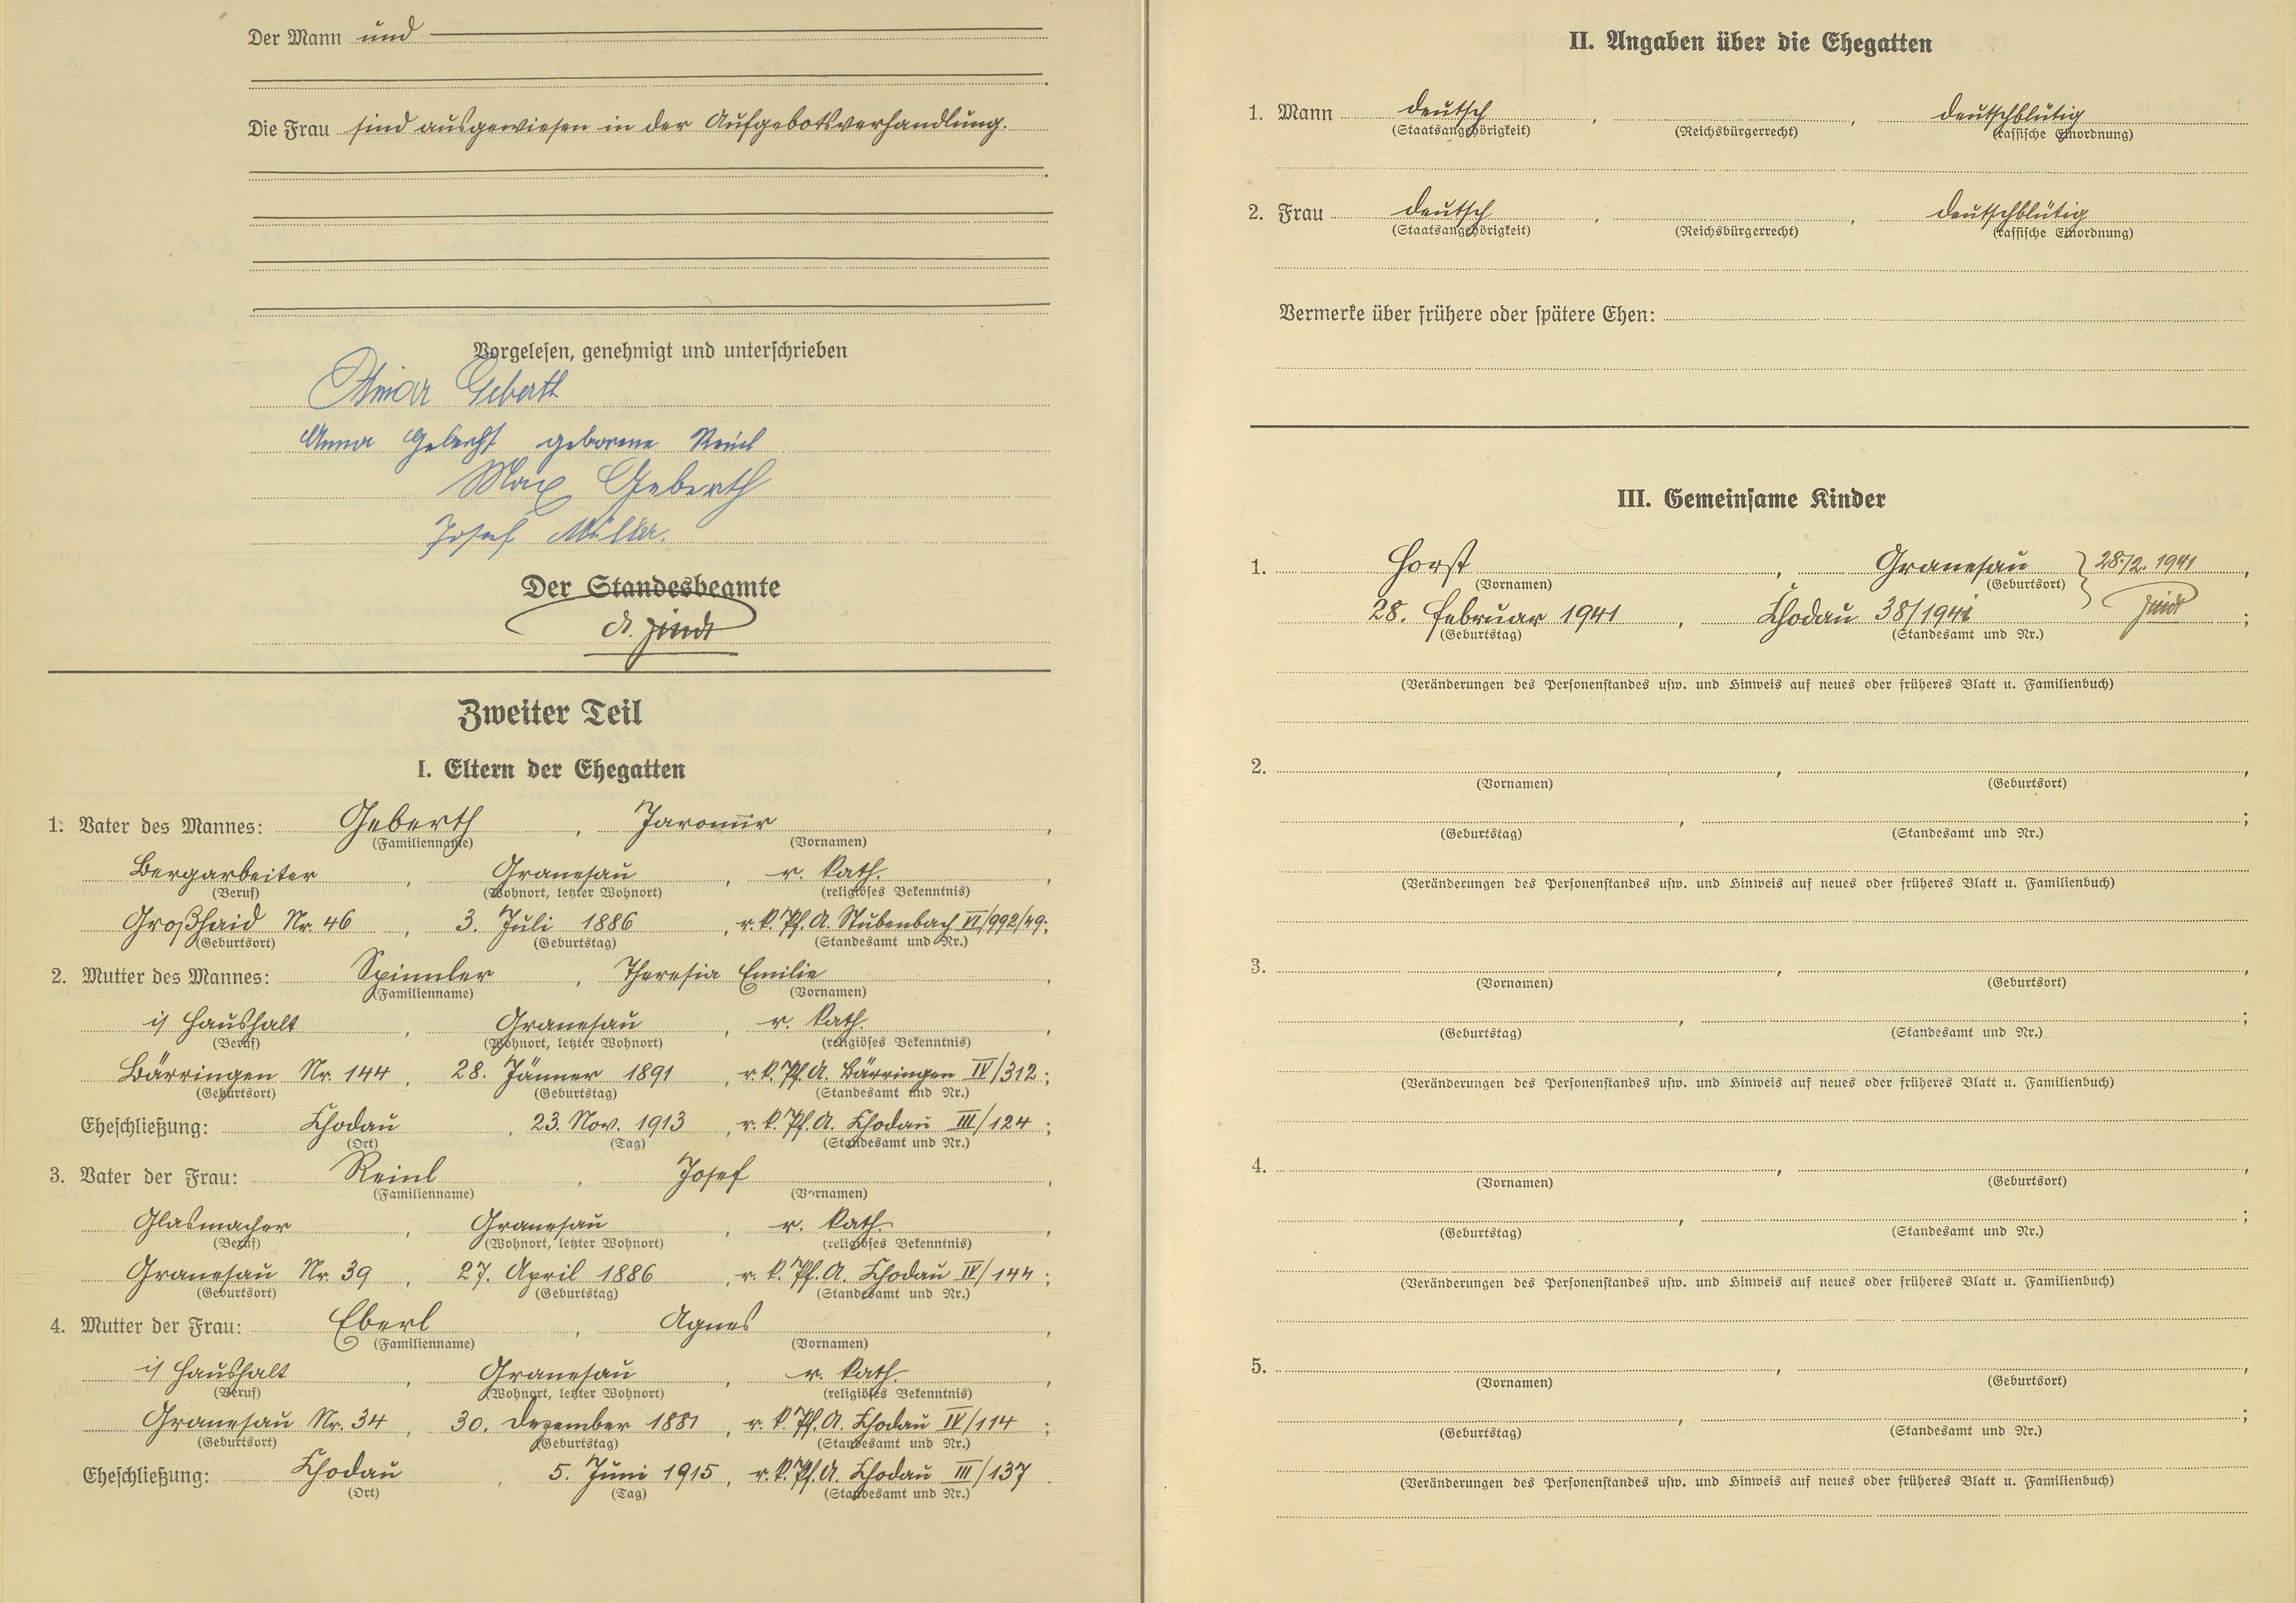 Der Mann und
Die Frau sind ausgewiesen in der Aufgebotsverhandlung.
Vorgelesen, genehmigt und unterschrieben
Geberth
Anna Geberth geborene Reinl
Max Geberth
Josef Müller.
Der Standesbeamte
Zweiter Teil
I. Eltern der Ehegatten
1. Vater des Mannes: Geberth, Jaromir,
(Familienname) (Vornamen)
Bergarbeiter, Granesau, r. kath.,
(Beruf) (Wohnort, letzter Wohnort) (religiöses Bekenntnis)
Großhaid Nr. 46, 3. Juli 1886, r. k. Pf. A. Stubenbach VI/992/49;
(Geburtsort) (Geburtstag) (Standesamt und Nr.)
2. Mutter des Mannes: Spinnler, Theresia Emilie,
(Familienname) (Vornamen)
i/ Haushalt, Granesau, r. kath.,
(Beruf) (Wohnort, letzter Wohnort) (religiöses Bekenntnis)
Bärringen Nr. 144, 28. Jänner 1891, r. k. Pf. A. Bärringen IV/312;
(Geburtsort) (Geburtstag) (Standesamt und Nr.)
Eheschließung: Chodau, 23. Nov. 1913, r. k. Pf. A. Chodau III/124;
(Ort) (Tag) (Standesamt und Nr.)
3. Vater der Frau: Reinl, Josef,
(Familienname) (Vornamen)
Glasmacher, Granesau, r. kath.,
(Beruf) (Wohnort, letzter Wohnort) (religiöses Bekenntnis)
Granesau Nr. 39, 27. April 1886, r. k. Pf. A. Chodau IV/144;
(Geburtsort) (Geburtstag) (Standesamt und Nr.)
4. Mutter der Frau: Eberl, Agnes,
(Familienname) (Vornamen)
i/ Haushalt, Granesau, r. kath.,
(Beruf) (Wohnort, letzter Wohnort) (religiöses Bekenntnis)
Granesau Nr. 34, 30. Dezember 1881, r. k. Pf. A. Chodau IV/114;
(Geburtsort) (Geburtstag) (Standesamt und Nr.)
Eheschließung: Chodau, 5. Juni 1915, r. k. Pf. A. Chodau III/137
(Ort) (Tag) (Standesamt und Nr.)
II. Angaben über die Ehegatten
1. Mann deutsch, , deutschblütig
(Staatsangehörigkeit) (Reichsbürgerrecht) (rassische Einordnung)
2. Frau deutsch, , deutschblütig
(Staatsangehörigkeit) (Reichsbürgerrecht) (rassische Einordnung)
Vermerke über frühere oder spätere Ehen:
III. Gemeinsame Kinder
1. Horst, Granesau } 28./2. 1941,
(Vornamen) (Geburtsort)
28. Februar 1941, Chodau 38/1941;
(Geburtstag) (Standesamt und Nr.)
(Veränderungen des Personenstandes usw. und Hinweis auf neues oder früheres Blatt u. Familienbuch)
2. , ,
(Vornamen) (Geburtsort)
, ;
(Geburtstag) (Standesamt und Nr.)
(Veränderungen des Personenstandes usw. und Hinweis auf neues oder früheres Blatt u. Familienbuch)
3. , ,
(Vornamen) (Geburtsort)
, ;
(Geburtstag) (Standesamt und Nr.)
(Veränderungen des Personenstandes usw. und Hinweis auf neues oder früheres Blatt u. Familienbuch)
4. , ,
(Vornamen) (Geburtsort)
, ;
(Geburtstag) (Standesamt und Nr.)
(Veränderungen des Personenstandes usw. und Hinweis auf neues oder früheres Blatt u. Familienbuch)
5. , ,
(Vornamen) (Geburtsort)
, ;
(Geburtstag) (Standesamt und Nr.)
(Veränderungen des Personenstandes usw. und Hinweis auf neues oder früheres Blatt u. Familienbuch)